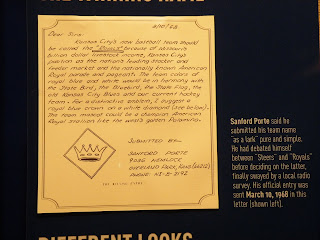 THE WINNING NAME
3/10/68
Dear Sirs:
Kansas City's new baseball team should
be called the "Royals" because of Missouri's
billion dollar livestock income, Kansas City's
position as the nation's leading stocker and
feeder market and the nationally known American
Royal parade and pageant. The team colors of
royal blue and white would be in harmony with
the State Bird, the Bluebird, the State Flag, the
old Kansas City Blues and our current hockey
team. For a distinctive emblem, I suggest a
royal blue crown on a white diamond (see below).
The team mascot could be a champion American
Royal stallion like the world's
SUBMITTED BY:
SANFORD PORTE
OVERLAND PARK, KANS (66212)
PHONE: NI-8-2192
THE WINNING ENTRY
Sanford Porte said he
submitted his team name
"as a lark" pure and simple.
He had debated himself
between "Steers" and "Royals"
before deciding on the latter,
finally swayed by a local radio
survey. His official entry was
sent March 10, 1968 in this
letter (shown left).
DIFFERENT LOOKS